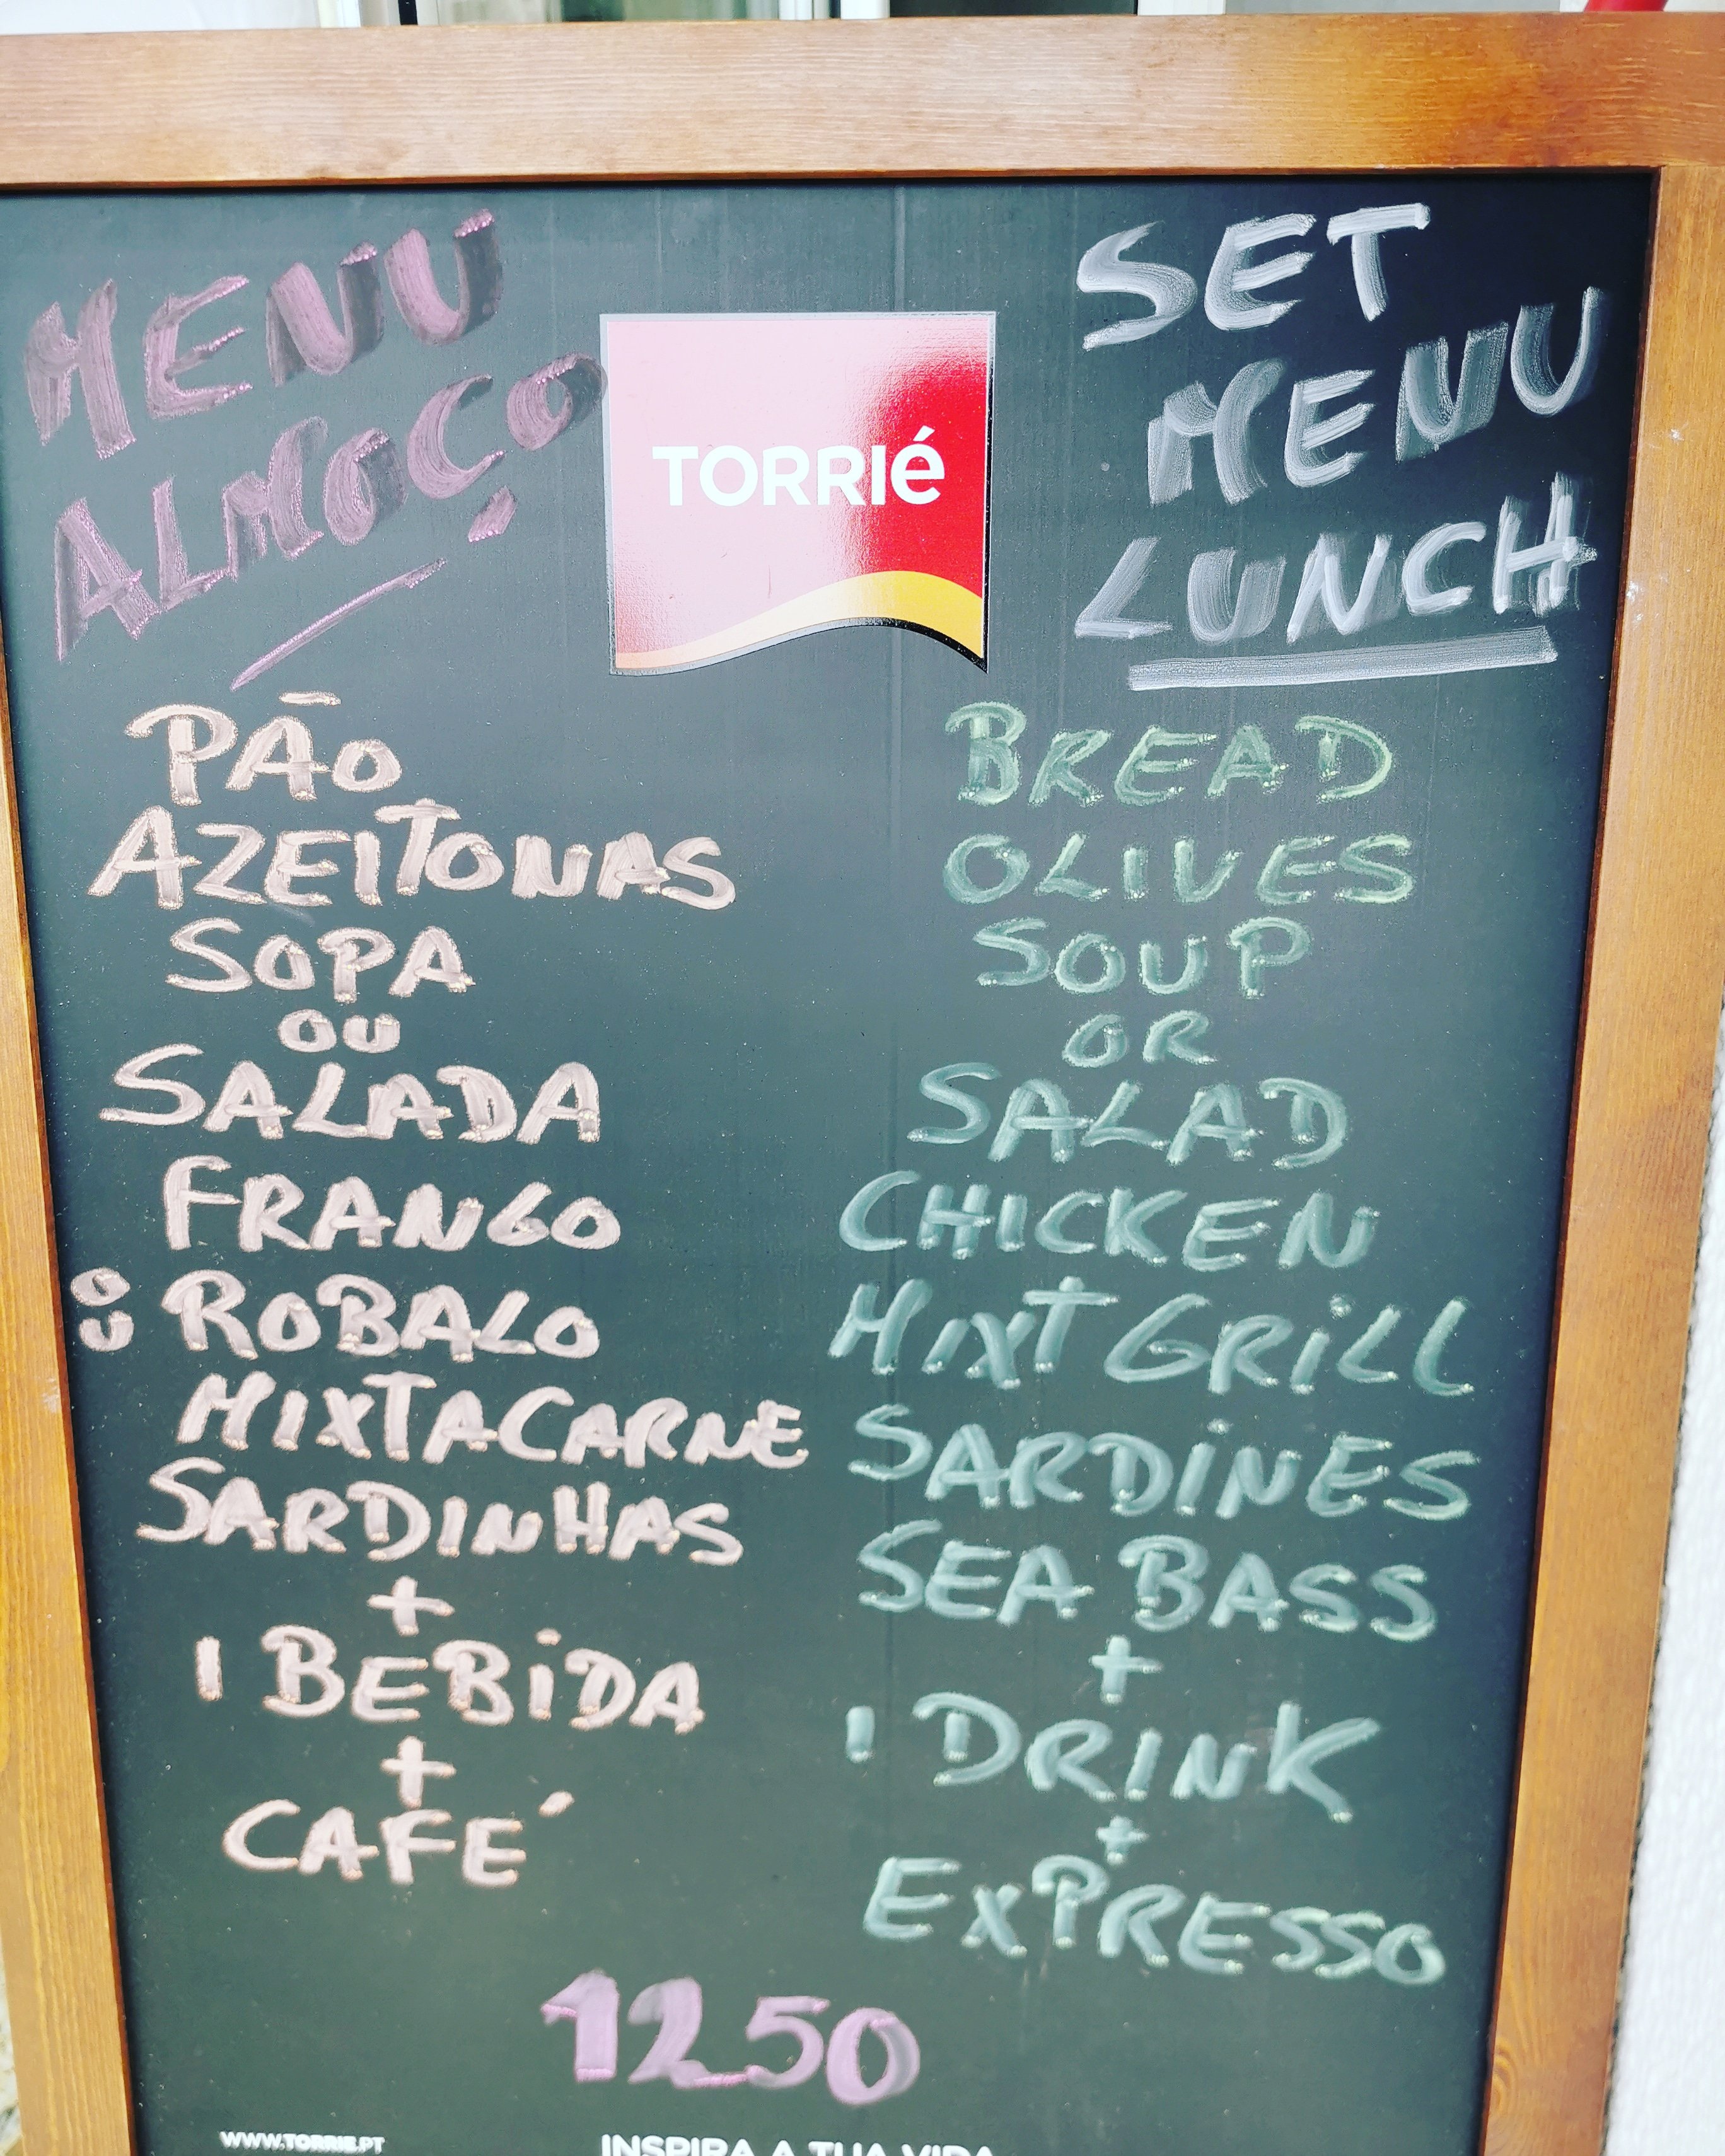 MENU
ALMOÇO
TORRIé
SET
MENU
LUNCH
PÃO
AZEITONAS
SOPA
OU
SALADA
FRANGO
OU ROBALO
MIXTACARNE
SARDINHAS
+
1 BEBIDA
+
CAFÉ
BREAD
OLIVES
SOUP
OR
SALAD
CHICKEN
MIXT GRILL
SARDINES
SEA BASS
+
1 DRINK
+
EXPRESSO
1250
WWW.TORRIE.PT
INSPIRA A TUA VIDA